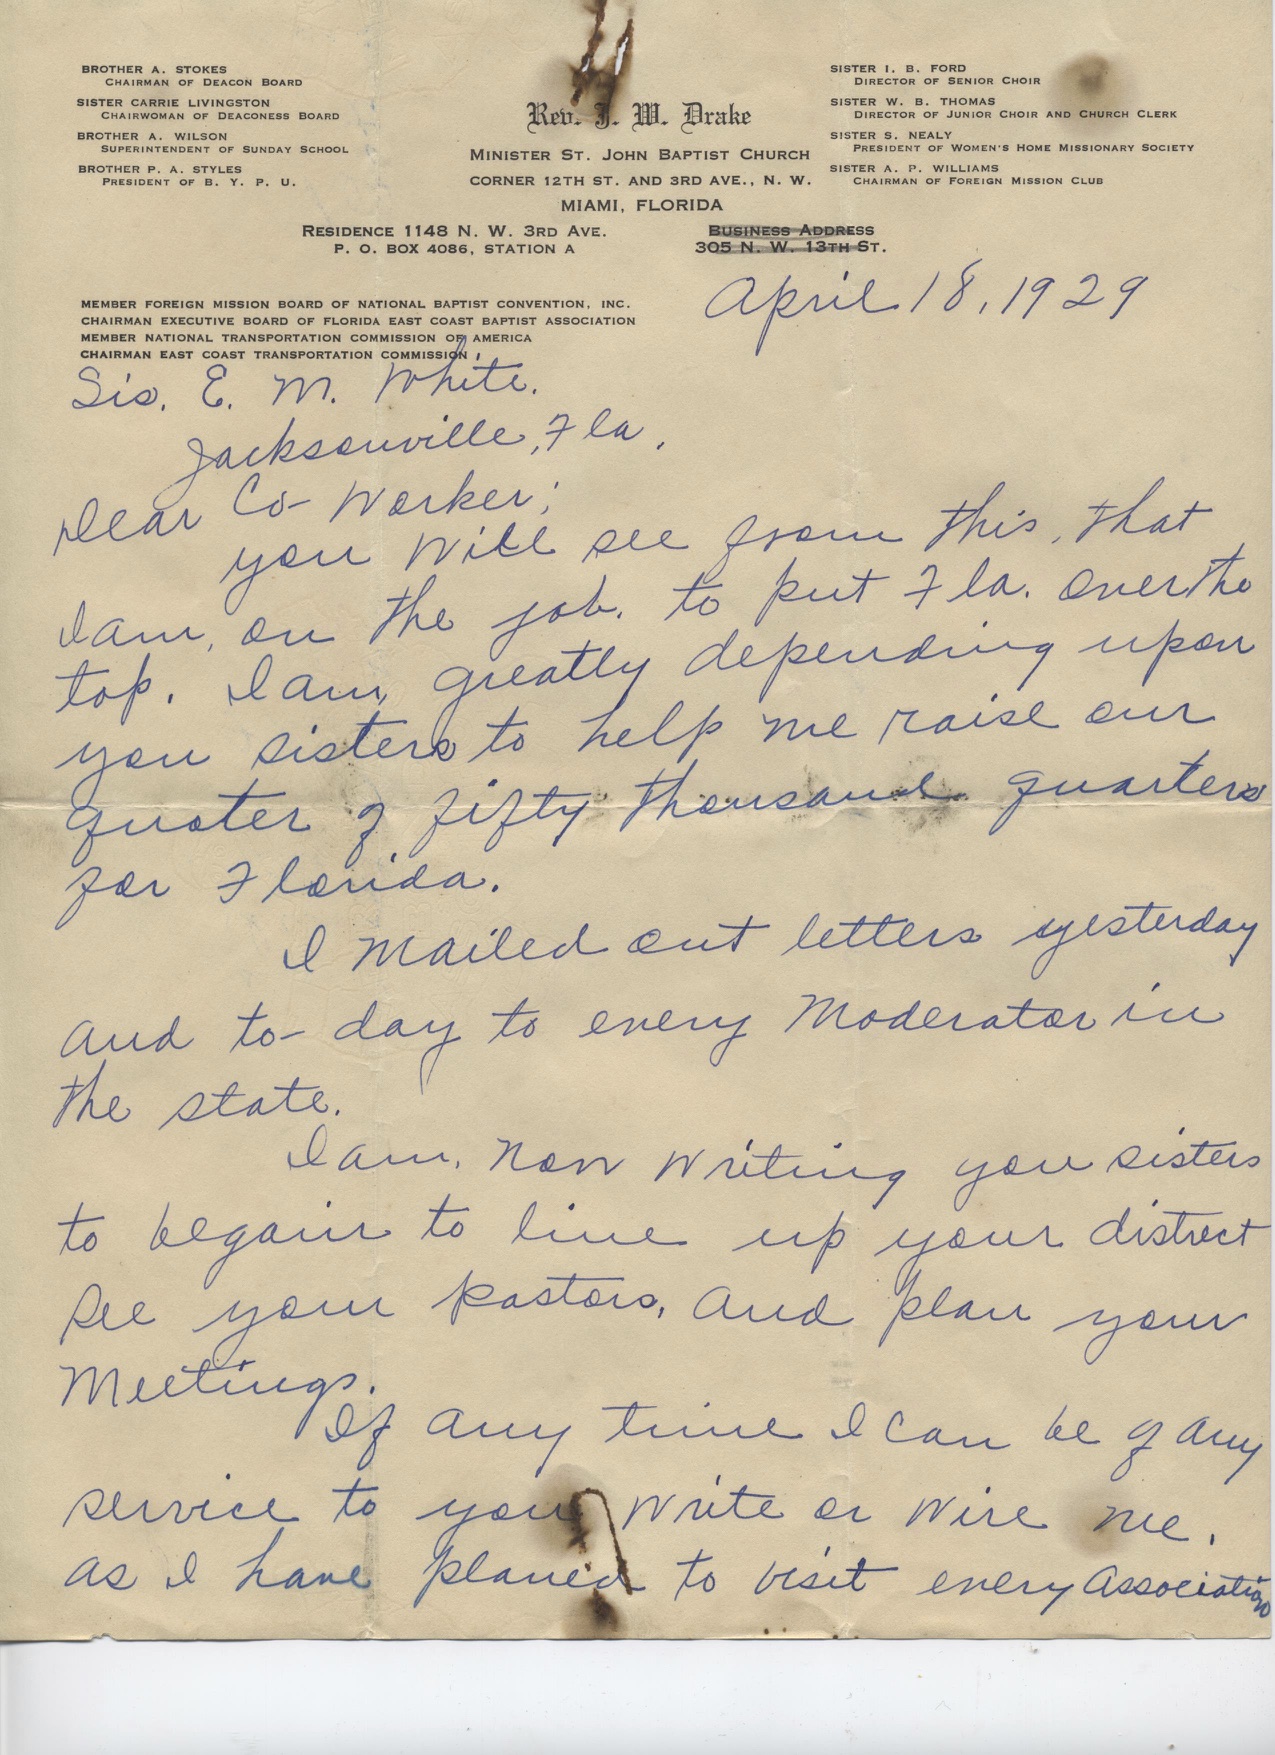 BROTHER A. STOKES
CHAIRMAN OF DEACON BOARD
SISTER CARRIE LIVINGSTON
CHAIRWOMAN OF DEACONESS BOARD
BROTHER A. WILSON
SUPERINTENDENT OF SUNDAY SCHOOL
BROTHER P. A. STYLES
PRESIDENT OF B. Y. P. U.
Rev. J. W. Drake
MINISTER ST. JOHN BAPTIST CHURCH
CORNER 12TH ST. AND 3RD AVE., N. W.
MIAMI, FLORIDA
SISTER I. B. FORD
DIRECTOR OF SENIOR CHOIR
SISTER W. B. THOMAS
DIRECTOR OF JUNIOR CHOIR AND CHURCH CLERK
SISTER S. NEALY
PRESIDENT OF WOMEN'S HOME MISSIONARY SOCIETY
SISTER A. P. WILLIAMS
CHAIRMAN OF FOREIGN MISSION CLUB
RESIDENCE 1148 N. W. 3RD AVE.
P. O. BOX 4086, STATION A
BUSINESS ADDRESS
305 N. W. 13TH ST.
MEMBER FOREIGN MISSION BOARD OF NATIONAL BAPTIST CONVENTION, INC.
CHAIRMAN EXECUTIVE BOARD OF FLORIDA EAST COAST BAPTIST ASSOCIATION
MEMBER NATIONAL TRANSPORTATION COMMISSION OF AMERICA
CHAIRMAN EAST COAST TRANSPORTATION COMMISSION
April 18, 1929
Sis. E. M. White.
Jacksonville, Fla.
Dear Co-Worker;
you will see from this, that
I am, on the job. to put Fla. over the
top. I am, greatly depending upon
you sisters to help me raise our
quoter of fifty thousand quarters
for Florida.
I mailed out letters yesterday
and to-day to every Moderator in
the state.
I am, now writing you sisters
to begain to line up your district
see your pastors, and plan your
Meetings.
If any time I can be of any
service to you write or wire me.
as I have planed to visit every Association